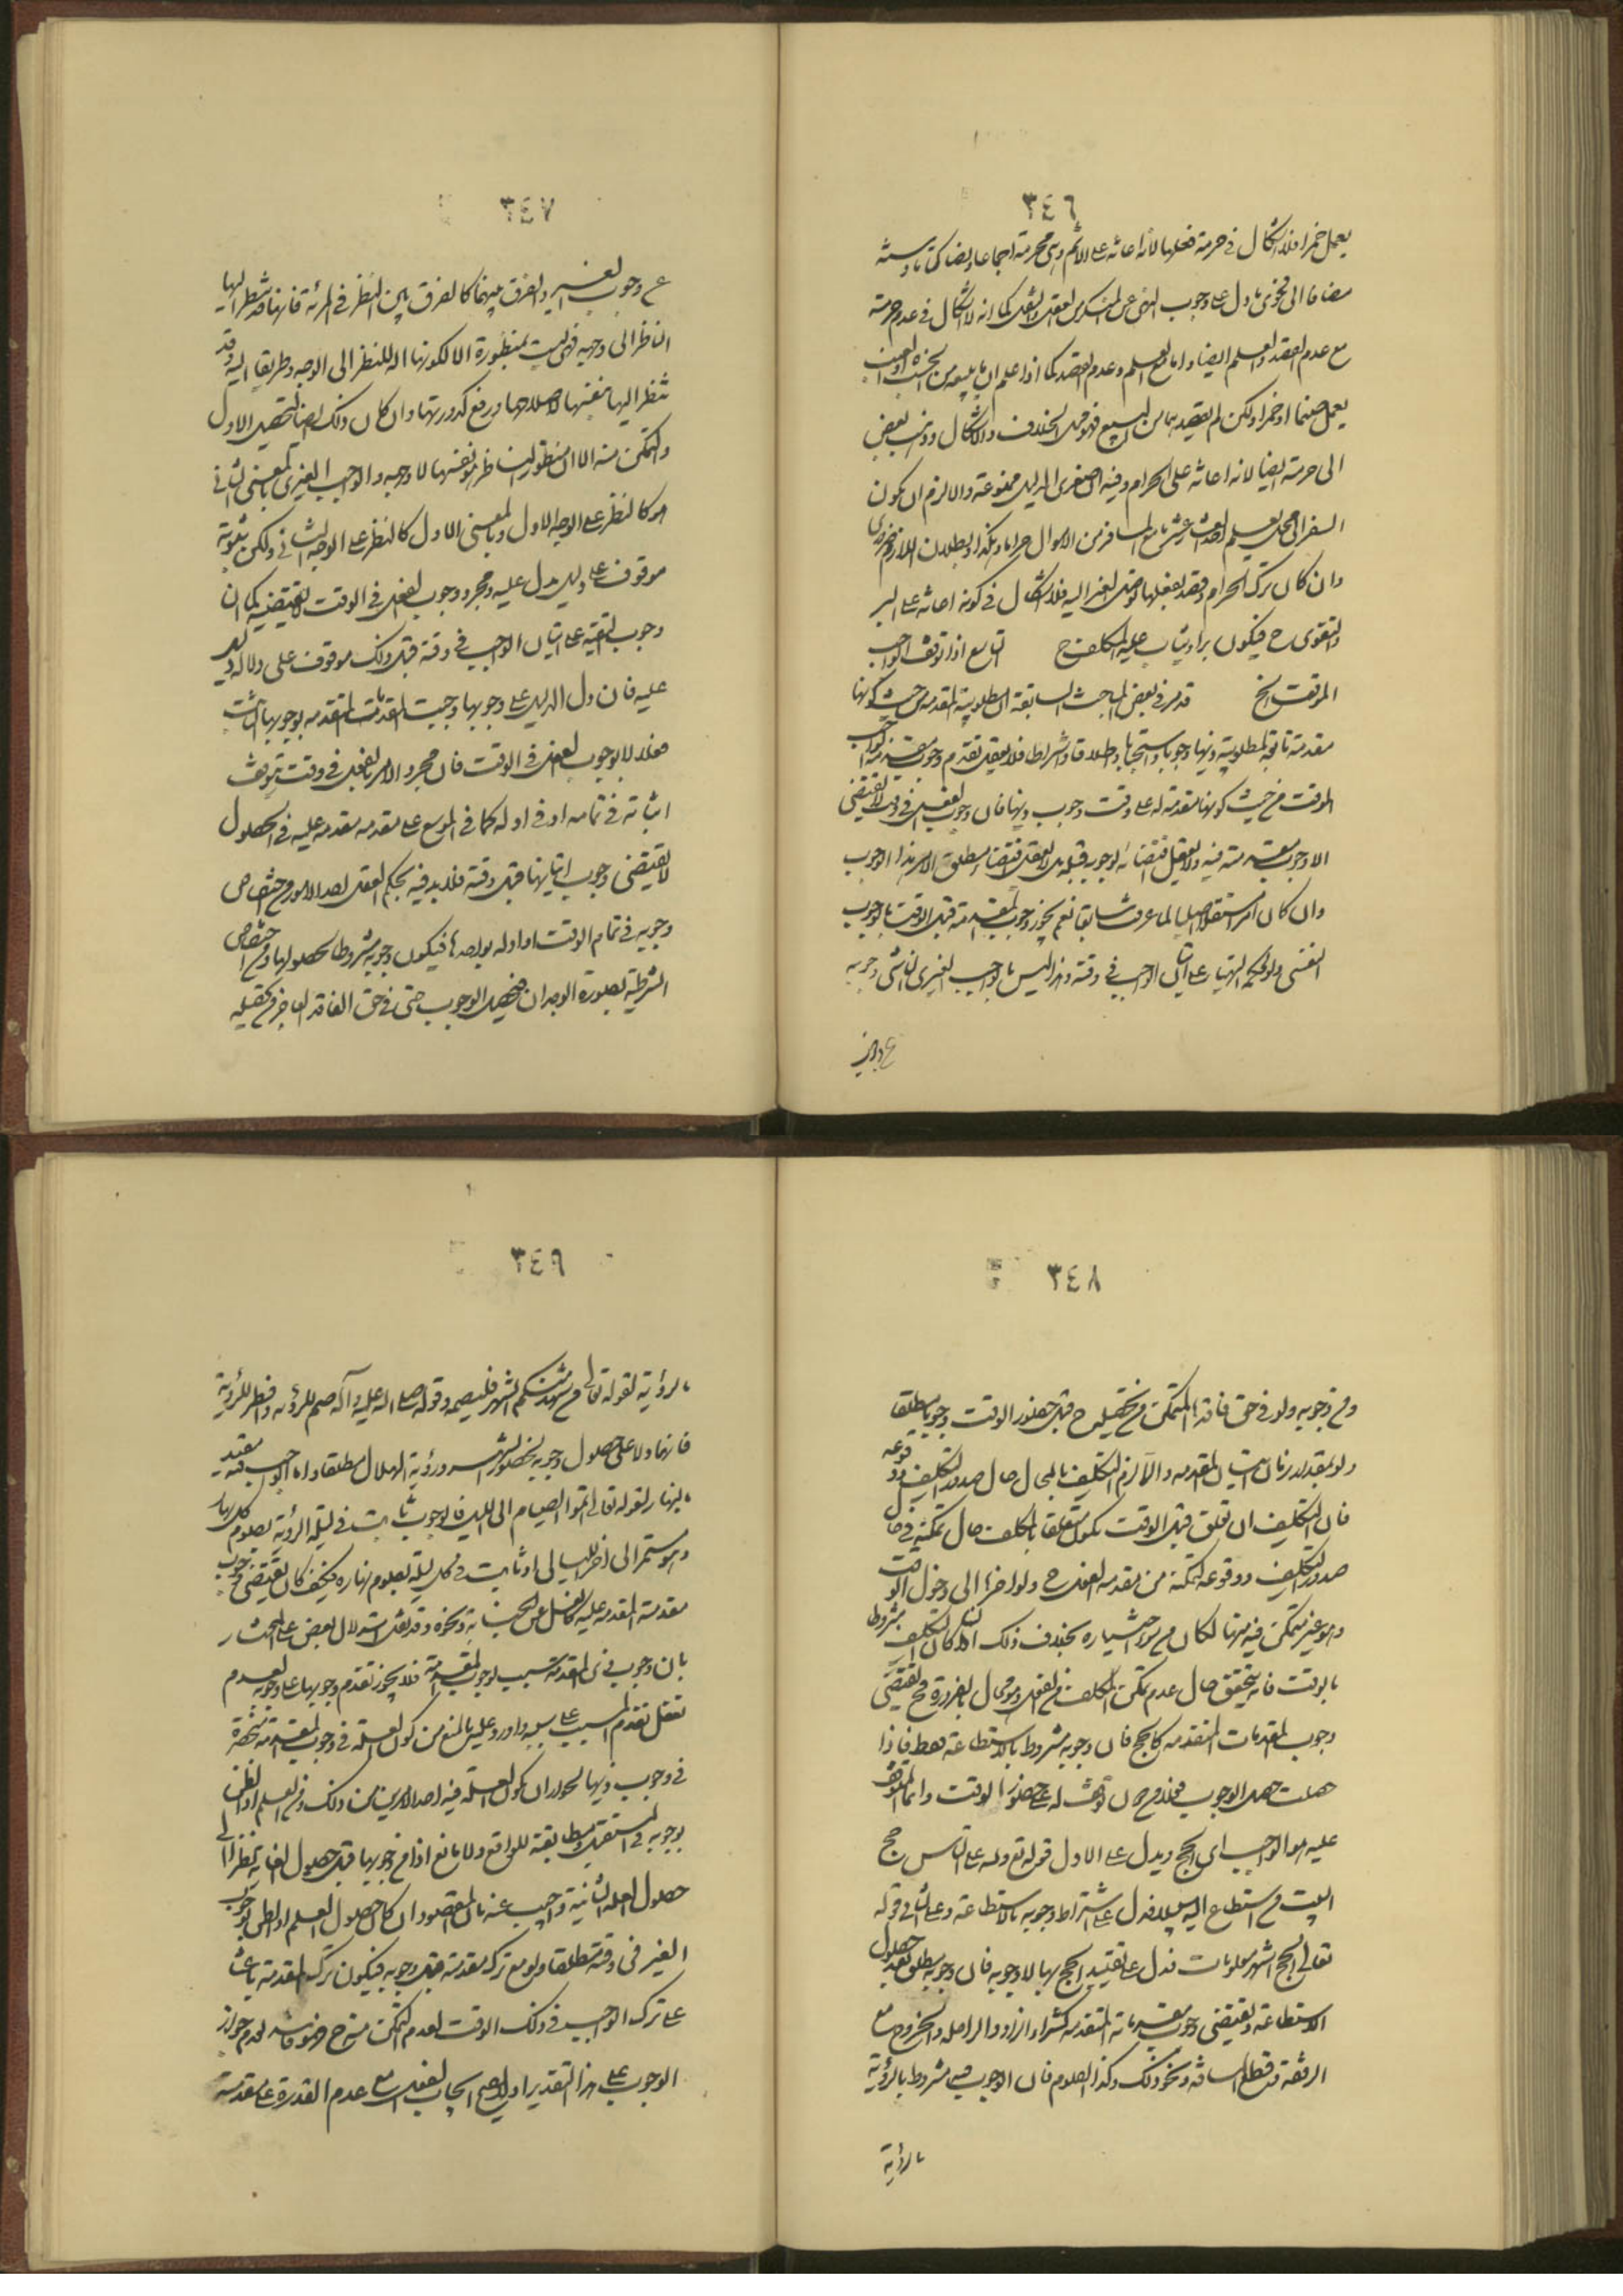 ٣٤٦
يعمل خمرا فلا اشكال في حرمة فعلها لأنه اعانة على الاثم وهي محرمة اجماعا ونصا كتابا وسنة
مضافا الى فحوى ما دل على وجوب النهي عن المنكر من العقل والنقل كما انه لا اشكال في عدم حرمته
مع عدم القصد والعلم ايضا واما مع العلم وعدم القصد كما اذا علم ان ما يبيعه من الخشب او العنب
يعمل صنما او خمرا ولكن لم يقصد بها من البيع فهو محل الخلاف والاشكال وذهب بعض
الى حرمته ايضا لانه اعانة على الحرام وفيه ان صغرى الدليل ممنوعة والا لزم ان يكون
السفر الى محل يعلم العشار باخذ المسافر من الاموال حراما وهكذا وبطلان اللازم ضروري
وان كان ترك الحرام وقصد بفعلها توصل الغير اليه فلا اشكال في كونه اعانة على البر
والتقوى ح فيكون برا ويثاب عليه المكلف ح التاسع اذا توقف الواجب
الموقت الخ قد مر في بعض المباحث السابقة ان مطلوبية المقدمة من حيث كونها
مقدمة تابعة لمطلوبية ذيها وجوبا واستحبابا واطلاقا واشتراطا فلا يعقل تقدم وجوب مقدمة الواجب
الموقت من حيث كونها مقدمة له على وقت وجوب ذيها فان وجوب الفعل في وقت لا يقتضي
الا وجوب مقدمته فيه ولا يعقل اقتضائه لوجوبه قبله بل لا يعقل اقتضاء مطلق الامر هذا الوجوب
وان كان امرا مستقلا اصليا لما عرفت سابقا نعم يجوز وجوب المقدمة قبل الوقت بالوجوب
النفسي ولو لحكمة التهيأ على اتيان الواجب في وقته وهذا ليس بالوجوب الغيري الناشي وجوبه
عن وجوب
٣٤٧
عن وجوب الغير والفرق بينهما كالفرق بين النظر في المرئة فانها قد ينظر اليها
الناظر الى وجهه فهي ليست بمنظورة الا لكونها الة للنظر الى الوجه وطريقا اليه وقد
ينظر اليها نفسها لاصلاحها ورفع كدورتها وان كان ذلك ايضا لتحصيل الاول
والتمكن منه الا ان منظور الناظر هو نفسها لا وجهه والواجب الغيري بالمعنى الثاني
هو كالنظر على الوجه الاول وبالمعنى الاول كالنظر على الوجه الثاني ولكن ثبوته
موقوف على دليل يدل عليه ومجرد وجوب الفعل في الوقت لا يقتضيه كما ان
وجوب التهيئة على اتيان الواجب في وقته قبل ذلك موقوف على دلالة دليل
عليه فان دل الدليل على وجوبها وجبت المقدمات المتقدمة بوجوبها الثابت
فعلا لا بوجوب الفعل في الوقت فان مجرد الامر بالفعل في وقت يتوقف
اتيانه في تمامه او في اوله كما في الموسع على مقدمة مقدمة عليه في الحصول
لا يقتضي وجوب اتيانها قبل وقته فلا بد فيه بحكم العقل احد الامور من اختصاص
وجوبه في تمام الوقت او اوله بواجدها فيكون وجوبه مشروطا بحصولها ومن اختصاص
الشرطية بصورة الوجدان فيحصل الوجوب حتى في حق الفاقد العاجز عن تحصيله
٣٤٨
ومن وجوبه ولو في حق فاقدها المتمكن من تحصيله ح قبل حضور الوقت وجوبا مطلقا
ولو بمقدار زمان اتيان المقدمة والا لزم التكليف بالمحال حال صدور التكليف ووقوعه
فان التكليف ان تعلق قبل الوقت يكون متعلقا بالمكلف حال تمكنه في حال
صدور التكليف ووقوعه لتمكنه من مقدمة الفعل ح ولو اخرها الى دخول الوقت
وهو غير متمكن فيه منها لكان من سوء اختياره بخلاف ذلك اذا كان التكليف مشروطا
بالوقت فانه يتحقق حال عدم تمكن المكلف من الفعل وهو محال بالضرورة فح يقتضي
وجوب المقدمات المتقدمة كالحج فان وجوبه مشروط بالاستطاعة فقط فاذا
حصلت حصل الوجوب فعلا من دون توقف له على حضور الوقت وانما المتوقف
عليه هو الواجب اي الحج ويدل على الاول قوله تع ولله على الناس حج
البيت من استطاع اليه سبيلا فدل على اشتراط وجوبه بالاستطاعة وعلى الثاني قوله
تعالى الحج اشهر معلومات فدل على تقييد الحج بها لا وجوبه فان وجوبه مطلق بعد حصول
الاستطاعة ويقتضي وجوب مقدماته المتقدمة كشراء الزاد والراحلة والخروج مع
الرفقة وقطع المسافة ونحو ذلك وكذا الصوم فان الوجوب فيه مشروط بالرؤية
بالرؤية
٣٤٩
بالرؤية لقوله تعالى فمن شهد منكم الشهر فليصمه وقوله صلى الله عليه وآله صم للرؤية وافطر للرؤية
فانهما دلا على حصول وجوبه بحضور الشهر ورؤية الهلال مطلقا واما الواجب فقيد
بالنهار لقوله تعالى اتموا الصيام الى الليل فالوجوب ثابت في ليلة الرؤية لصوم كل نهار
وهو مستمر الى اخر الليالي او ثابت في كل ليلة لصوم نهاره فكيف كان يقتضي وجوب
مقدمته المتقدمة عليه كالغسل عن الجنابة ونحوه وقد نقل استدلال بعض على المختار
بان وجوب ذي المقدمة سبب لوجوب المقدمة فلا يجوز تقدم وجوبها على وجوبه لعدم
تعقل تقدم المسبب على سببه واورد عليه بالمنع من كون العلة في وجوب المقدمة منحصرة
في وجوب ذيها لجواز ان يكون العلة فيه احد الامرين من ذلك ومن العلم او الظن
بوجوبه في المستقبل ومطابقته للواقع ولا مانع اذا من وجوبها قبل حصول الغاية نظرا الى
حصول العلة الثانية واجيب عنه بان المقصود ان كان حصول العلم او الظن بوجوب
الغير في وقته مطلقا ولو مع ترك مقدمته قبل وجوبه فيكون ترك المقدمة باعثا
على ترك الواجب في ذلك الوقت لعدم التمكن منه ح فهو فاسد لعدم جواز
الوجوب على هذا التقدير اذ لا يصح ايجاب الفعل مع عدم القدرة على مقدمته